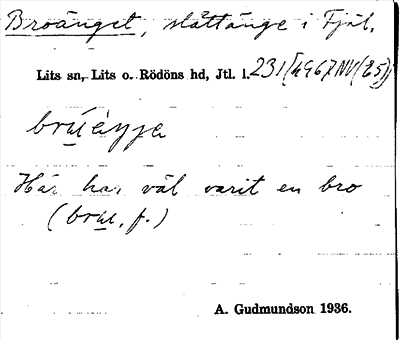 Broänget, slåttänge i Fjäl.
Lits sn, Lits o. Rödöns hd, Jtl. l. 231 (4967NV(25))
bru̲éŋŋa
Här har väl varit en bro
(bru̲, f.)
A. Gudmundson 1936.